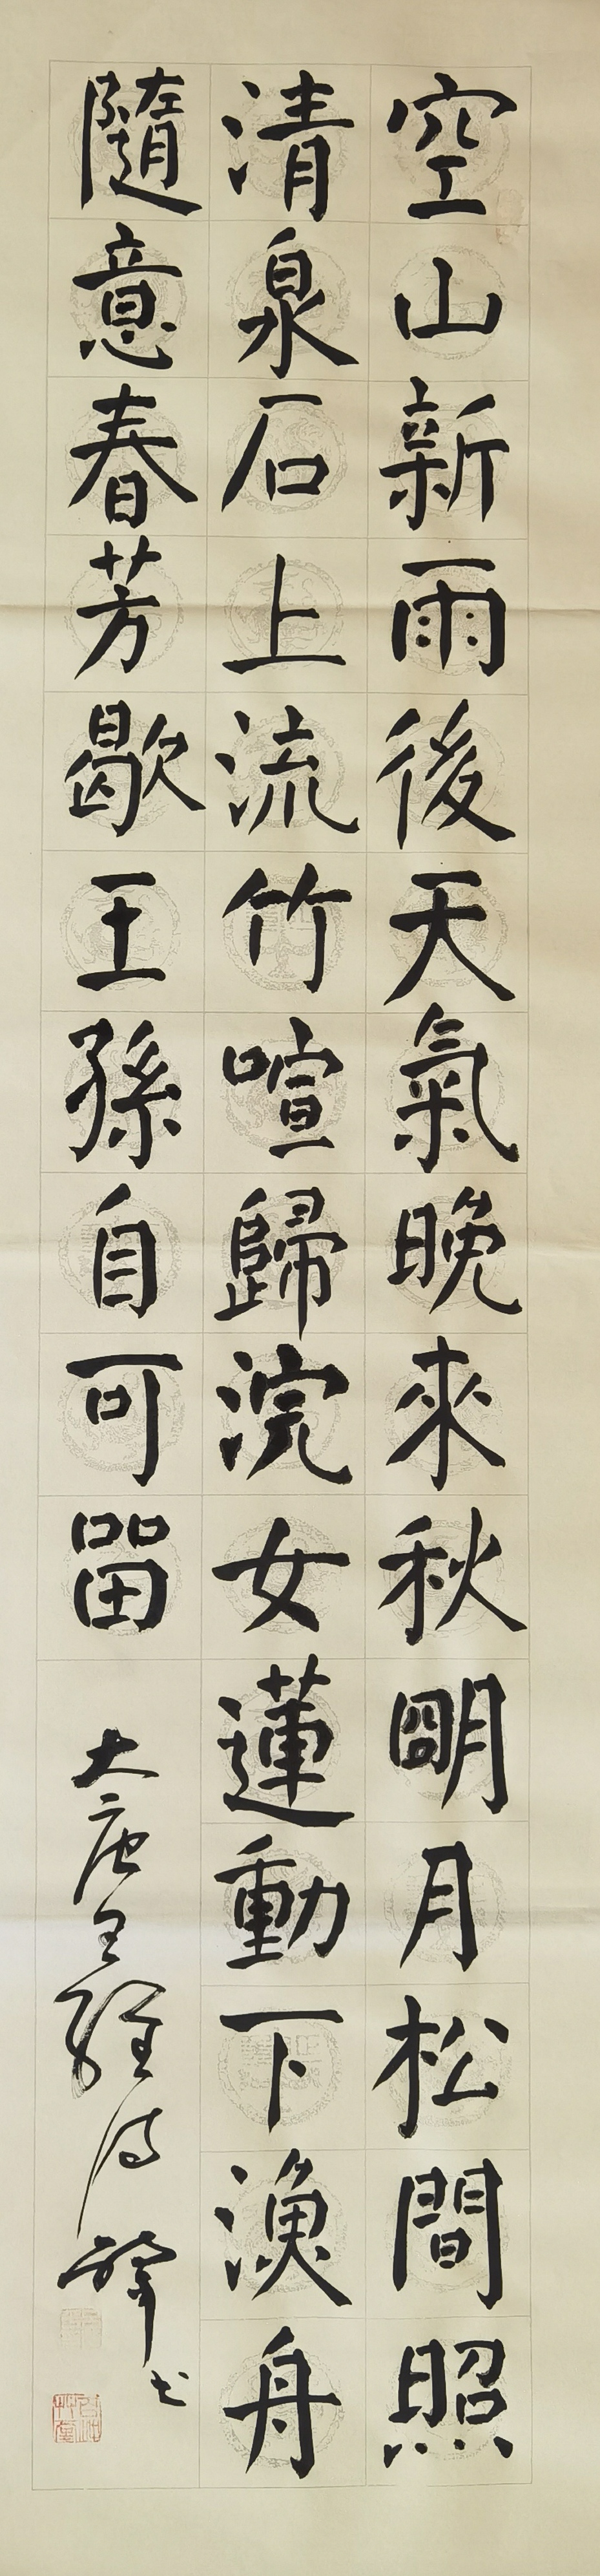 空山新雨後天氣晚來秋明月松間照
清泉石上流竹喧歸浣女蓮動下漁舟
隨意春芳歇王孫自可留
大唐王維詩
書